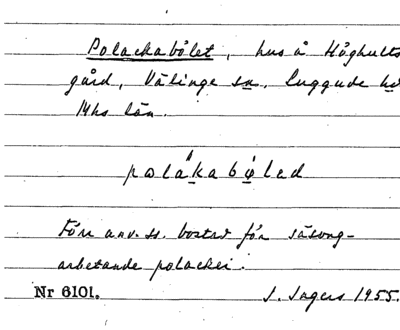 Polackabôlet, hus å Höghults
gård, Välinge sn. Luggude hd
Mhs län.
polákabǿled
Förr anv. ss. bostad för säsong-
arbetande polacker.
Nr 6101. J. Ingers 1955.